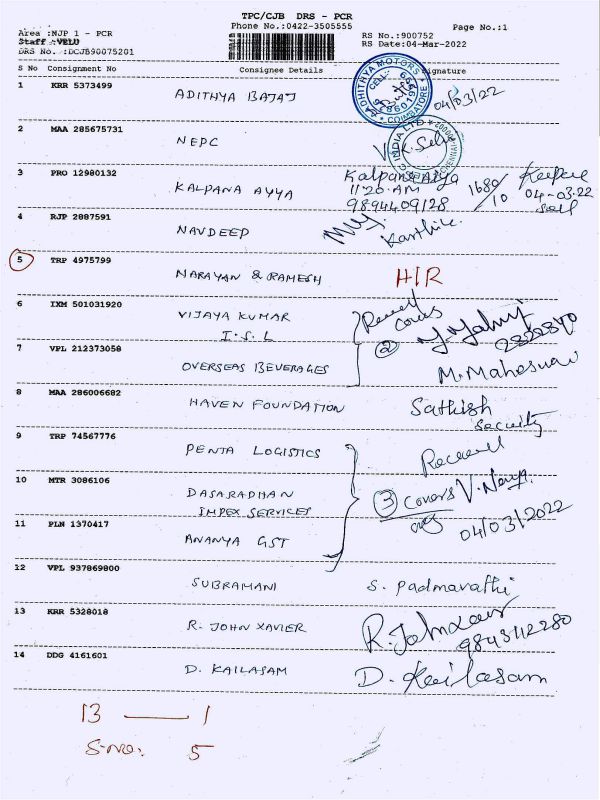 TPC/CJB DRS - PCR
Area :NJP 1 - PCR
Phone No.:0422-3505555
Page No.:1
Staff :VELU
RS No.:900752
DRS No. :DCJB90075201
RS Date:04-Mar-2022
S No Consignment No Consignee Details Signature
1 KRR 5373499 ADITHYA BAJAJ 04/03/22
AADHITHYA MOTORS COIMBATORE
2 MAA 285675731 NEPC
INDIA LTD
3 PRO 12980132 KALPANA AYYA Kalpana Ayya
11.20 AM 1680/10 04-03-22
9894409128 self
4 RJP 2887591 NAVDEEP Karthik
5 TRP 4975799 NARAYAN & RAMESH H/R
6 IXM 501031920 VIJAYA KUMAR
I.S.L
covers
2
7 VPL 212373058 OVERSEAS BEVERAGES
8 MAA 286006682 HAVEN FOUNDATION Sathish
Security
9 TRP 74567776 PENTA LOGISTICS Received
10 MTR 3086106 DASARADHAN
IMPEX SERVICES
3 covers
04/03/2022
11 PLN 1370417 ANANYA GST
12 VPL 937869800 SUBRAMANI S. Padmavathi
13 KRR 5328018 R. JOHN XAVIER R. John Xavier
9843112280
14 DDG 4161601 D. KAILASAM D. Kailasam
13 — 1
S.NO: 5